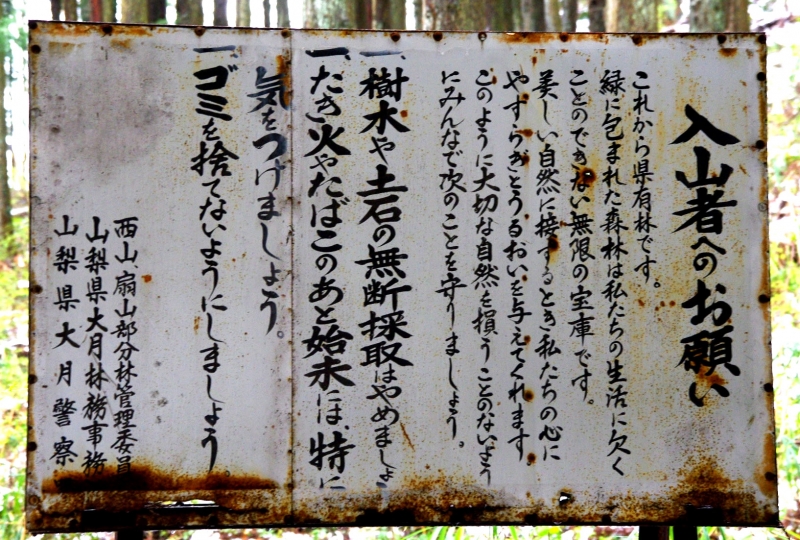 入山者へのお願い
これから県有林です。
緑に包まれた森林は私たちの生活に欠く
ことのできない無限の宝庫です。
美しい自然に接するとき私たちの心に
やすらぎとうるおいを与えてくれます
このように大切な自然を損うことのないよう
にみんなで次のことを守りましょう。
一、樹木や土石の無断採取はやめましょ
一、たき火やたばこのあと始末には、特に
気をつけましょう。
一、ゴミを捨てないようにしましょう。
西山、扇山部分林管理委員
山梨県大月林務事務
山梨県大月警察